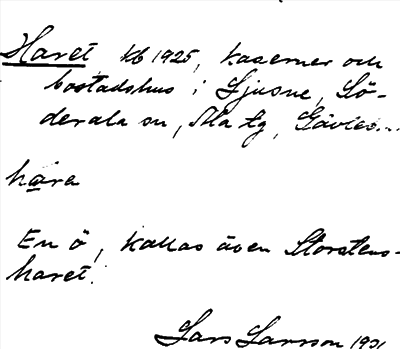 Haret, kb 1925, kaserner och
bostadshus i Ljusne, Sö-
derala sn, Ala tg, Gävleb...
hara
En ö, kallas även Storstens-
haret.
Lars Larsson